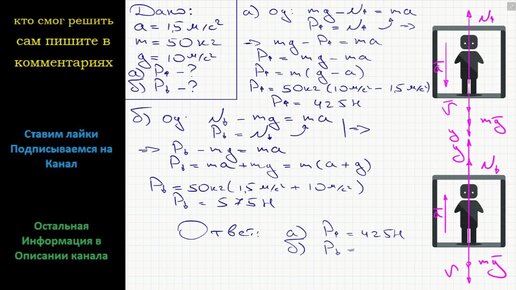 кто смог решить
сам пишите в
комментариях
Ставим лайки
Подписываемся на
Канал
Остальная
Информация в
Описании канала
Дано:
a = 1,5 м/с²
m = 50 кг
g = 10 м/с²
а) P₁ - ?
б) P₂ - ?
а) оу: mg - N₁ = ma
P₁ = N₁ ⇒
⇒ mg - P₁ = ma
P₁ = mg - ma
P₁ = m(g - a)
P₁ = 50кг(10м/с² - 1,5м/с²)
P₁ = 425Н
б) оу: N₂ - mg = ma
P₂ = N₂ ⇒
⇒ P₂ - mg = ma
P₂ = ma + mg = m(a + g)
P₂ = 50кг(1,5м/с² + 10м/с²)
P₂ = 575Н
Ответ: а) P₁ = 425Н
б) P₂ =
N₁
a
v
mg
y
y
N₂
a
v
mg